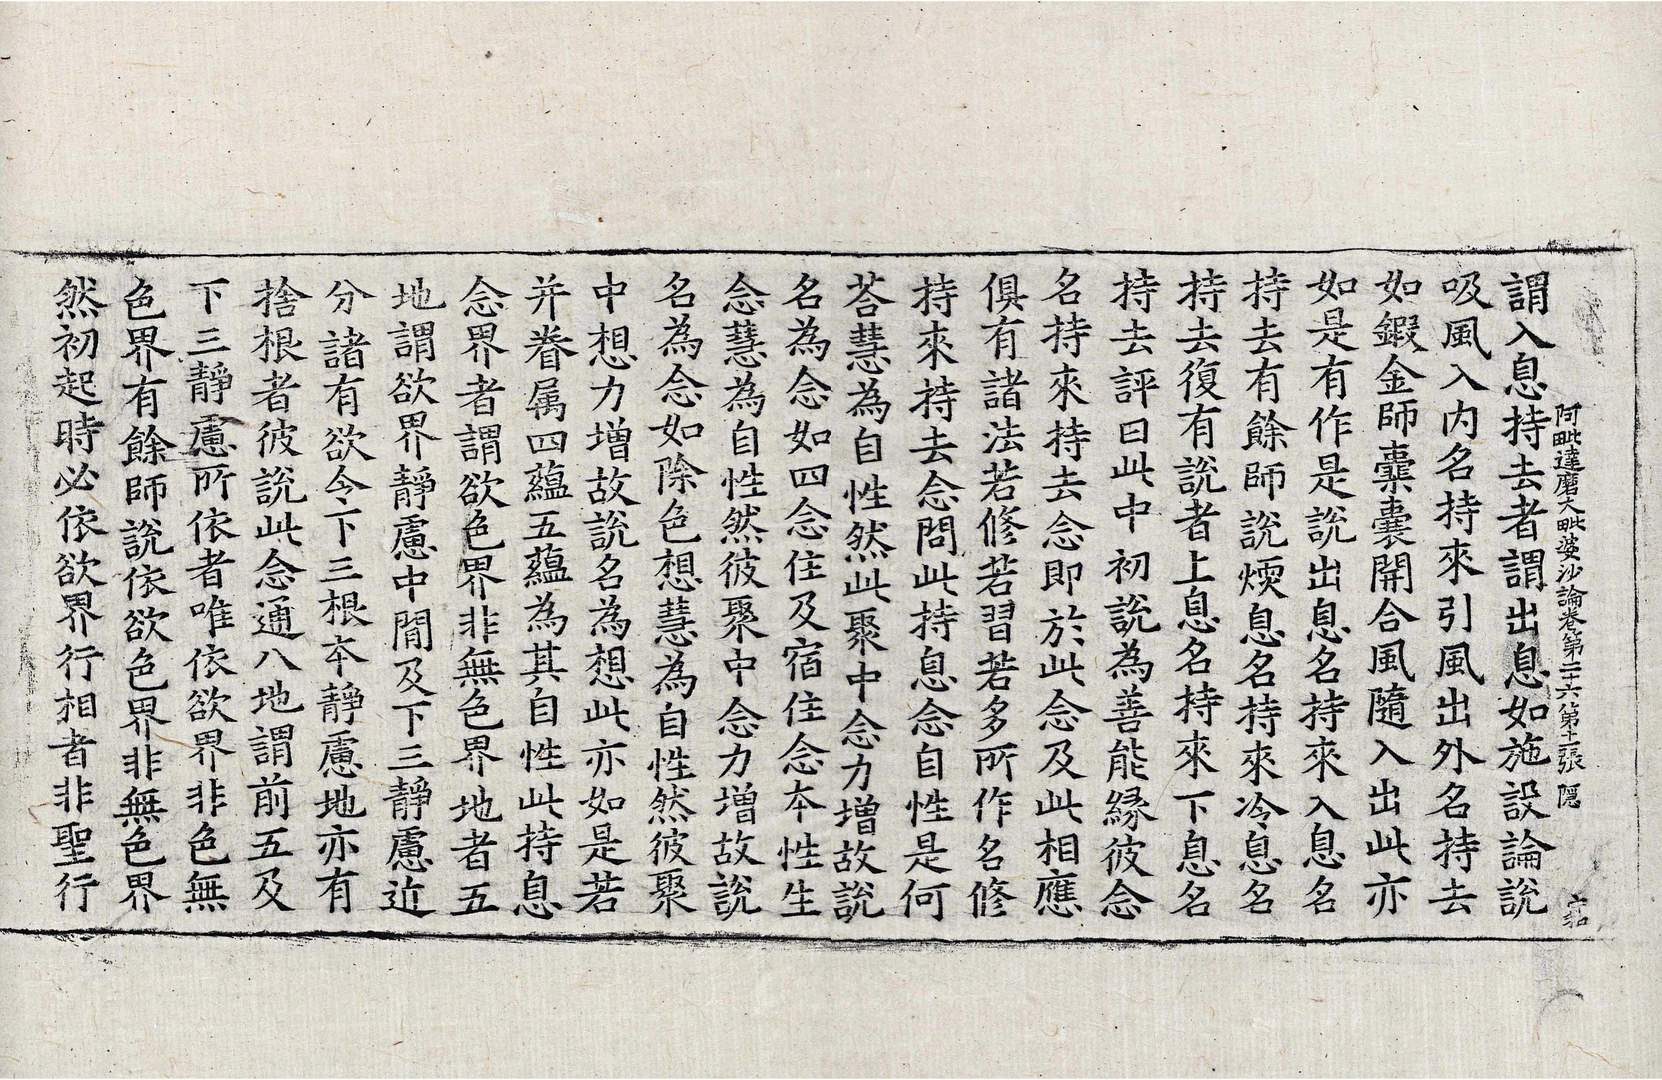 阿毗達磨大毗婆沙論卷第二十六第十一張 隱
謂入息持去者謂出息如施設論說
吸風入內名持來引風出外名持去
如鍜金師橐囊開合風隨入出此亦
如是有作是說出息名持來入息名
持去有餘師說煗息名持來冷息名
持去復有說者上息名持來下息名
持去評曰此中初說為善能緣彼念
名持來持去念即於此念及此相應
俱有諸法若修若習若多所作名修
持來持去念問此持息念自性是何
荅慧為自性然此聚中念力增故說
名為念如四念住及宿住念本性生
念慧為自性然彼聚中念力增故說
名為念如除色想慧為自性然彼聚
中想力增故說名為想此亦如是若
并眷属四蘊五蘊為其自性此持息
念界者謂欲色界非無色界地者五
地謂欲界靜慮中閒及下三靜慮近
分諸有欲令下三根本靜慮地亦有
捨根者彼說此念通八地謂前五及
下三靜慮所依者唯依欲界非色無
色界有餘師說依欲色界非無色界
然初起時必依欲界行相者非聖行